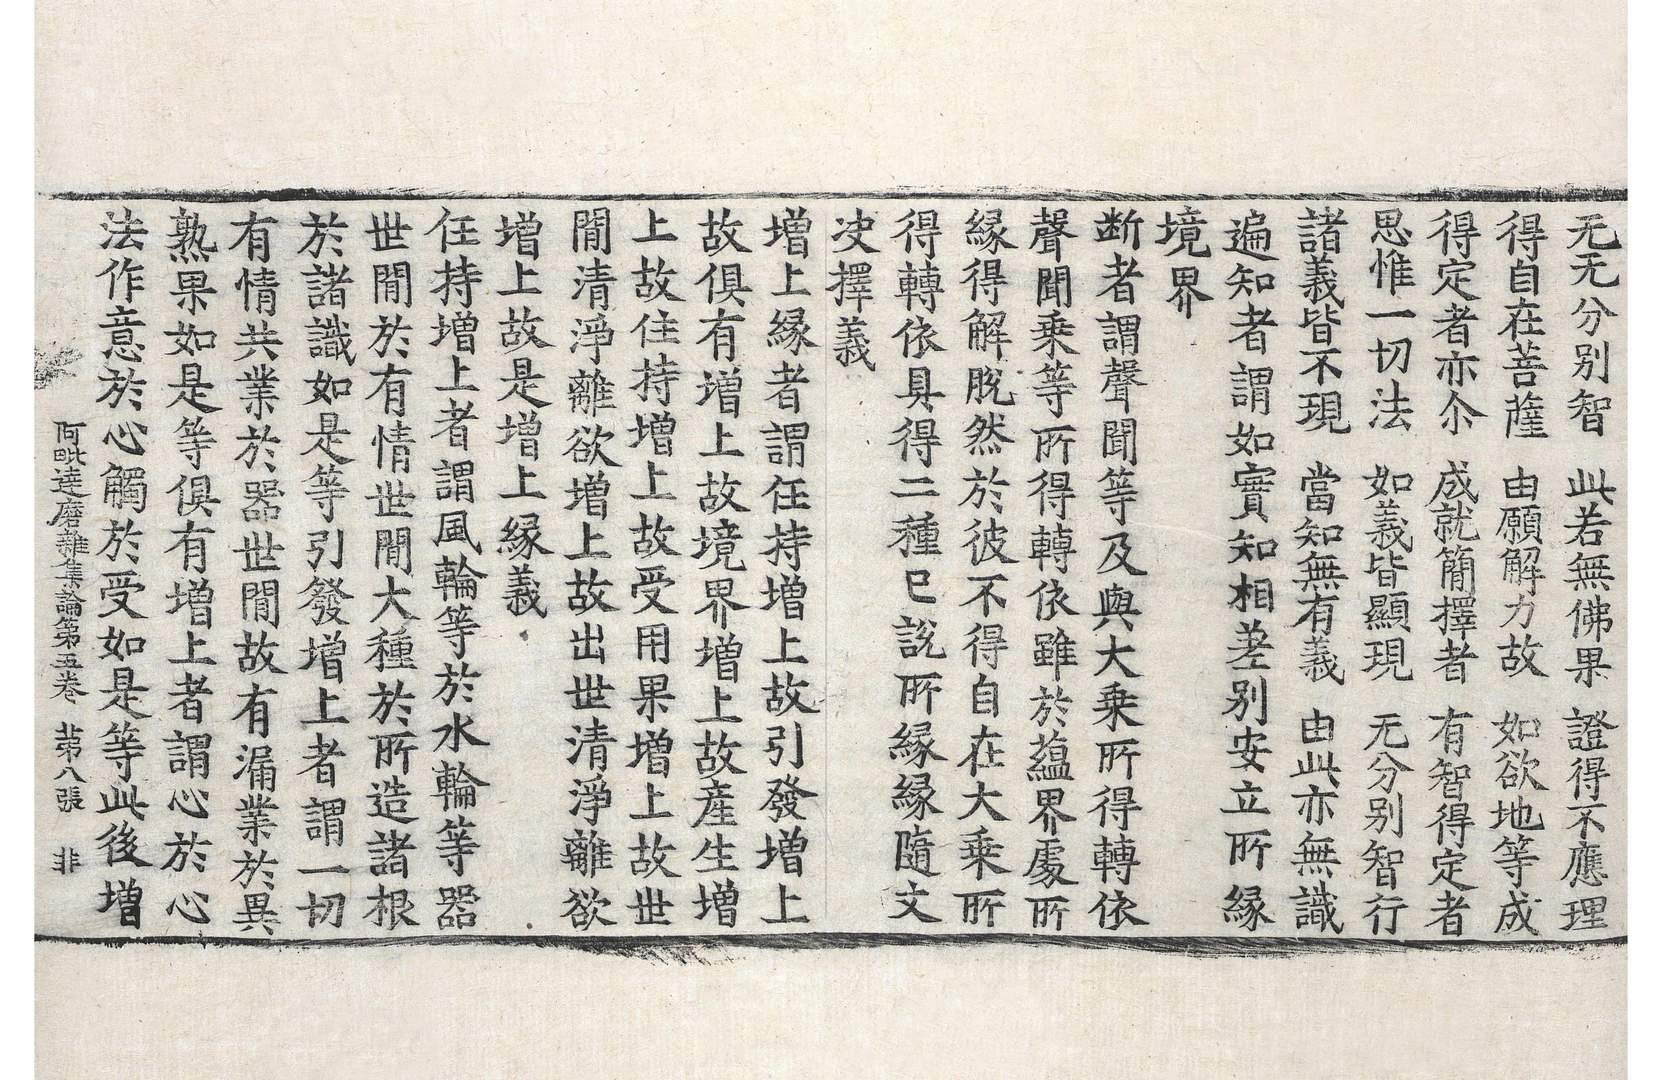 无无分别智　此若無佛果　證得不應理
得自在菩薩　由願解力故　如欲地等成
得定者亦尒　成就簡擇者　有智得定者
思惟一切法　如義皆顯現　无分别智行
諸義皆不現　當知無有義　由此亦無識
遍知者謂如實知相差别安立所緣
境界
断者謂聲聞等及與大乘所得轉依
聲聞乘等所得轉依雖於蘊界處所
緣得解脫然於彼不得自在大乘所
得轉依具得二種已說所緣緣隨文
决擇義
增上緣者謂任持增上故引發增上
故俱有增上故境界增上故產生增
上故住持增上故受用果增上故世
間清淨離欲增上故出世清淨離欲
增上故是增上緣義
任持增上者謂風輪等於水輪等器
世間於有情世間大種於所造諸根
於諸識如是等引發增上者謂一切
有情共業於器世間故有漏業於異
熟果如是等俱有增上者謂心於心
法作意於心觸於受如是等此後增
阿毗達磨雜集論第五卷　苐八張　非